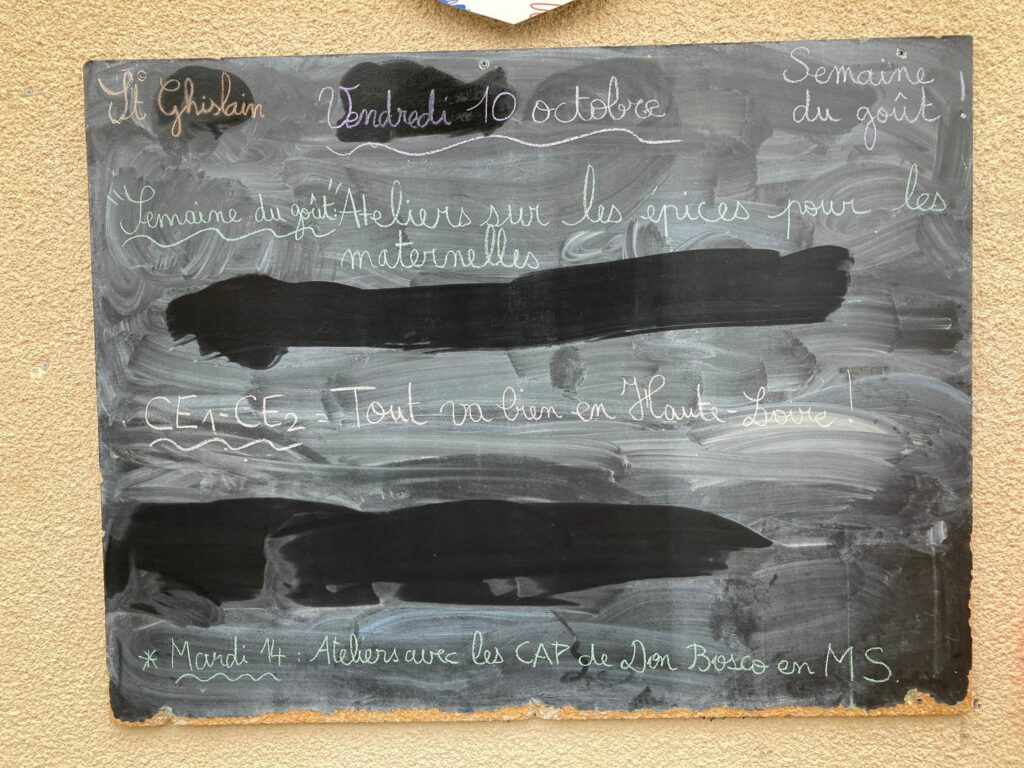 St Ghislain
Vendredi 10 octobre
Semaine
du goût !
"Semaine du goût": Ateliers sur les épices pour les
maternelles
CE1-CE2 = Tout va bien en Haute-Loire !
* Mardi 14 : Ateliers avec les CAP de Don Bosco en MS.